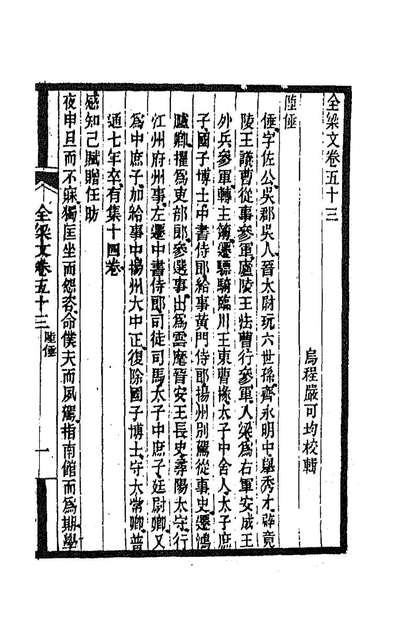 全梁文卷五十三
烏程嚴可均校輯
陸倕
倕字佐公吳郡吳人晉太尉玩六世孫齊永明中舉秀才辟竟
陵王議曹從事參軍廬陵王法曹行參軍入梁爲右軍安成王
外兵參軍轉主簿遷驃騎臨川王東曹掾太子中舍人太子庶
子國子博士中書侍郎給事黃門侍郎揚州別駕從事史遷鴻
臚卿擢爲吏部郎參選事出爲雲麾晉安王長史尋陽太守行
江州府州事左遷中書侍郎司徒司馬太子中庶子廷尉卿又
爲中庶子加給事中揚州大中正復除國子博士守太常卿普
通七年卒有集十四卷
感知己賦贈任昉
夜申旦而不寐獨匡坐而怨咨命僕夫而夙駕指南館而爲期學
全梁文卷五十三
陸倕
一